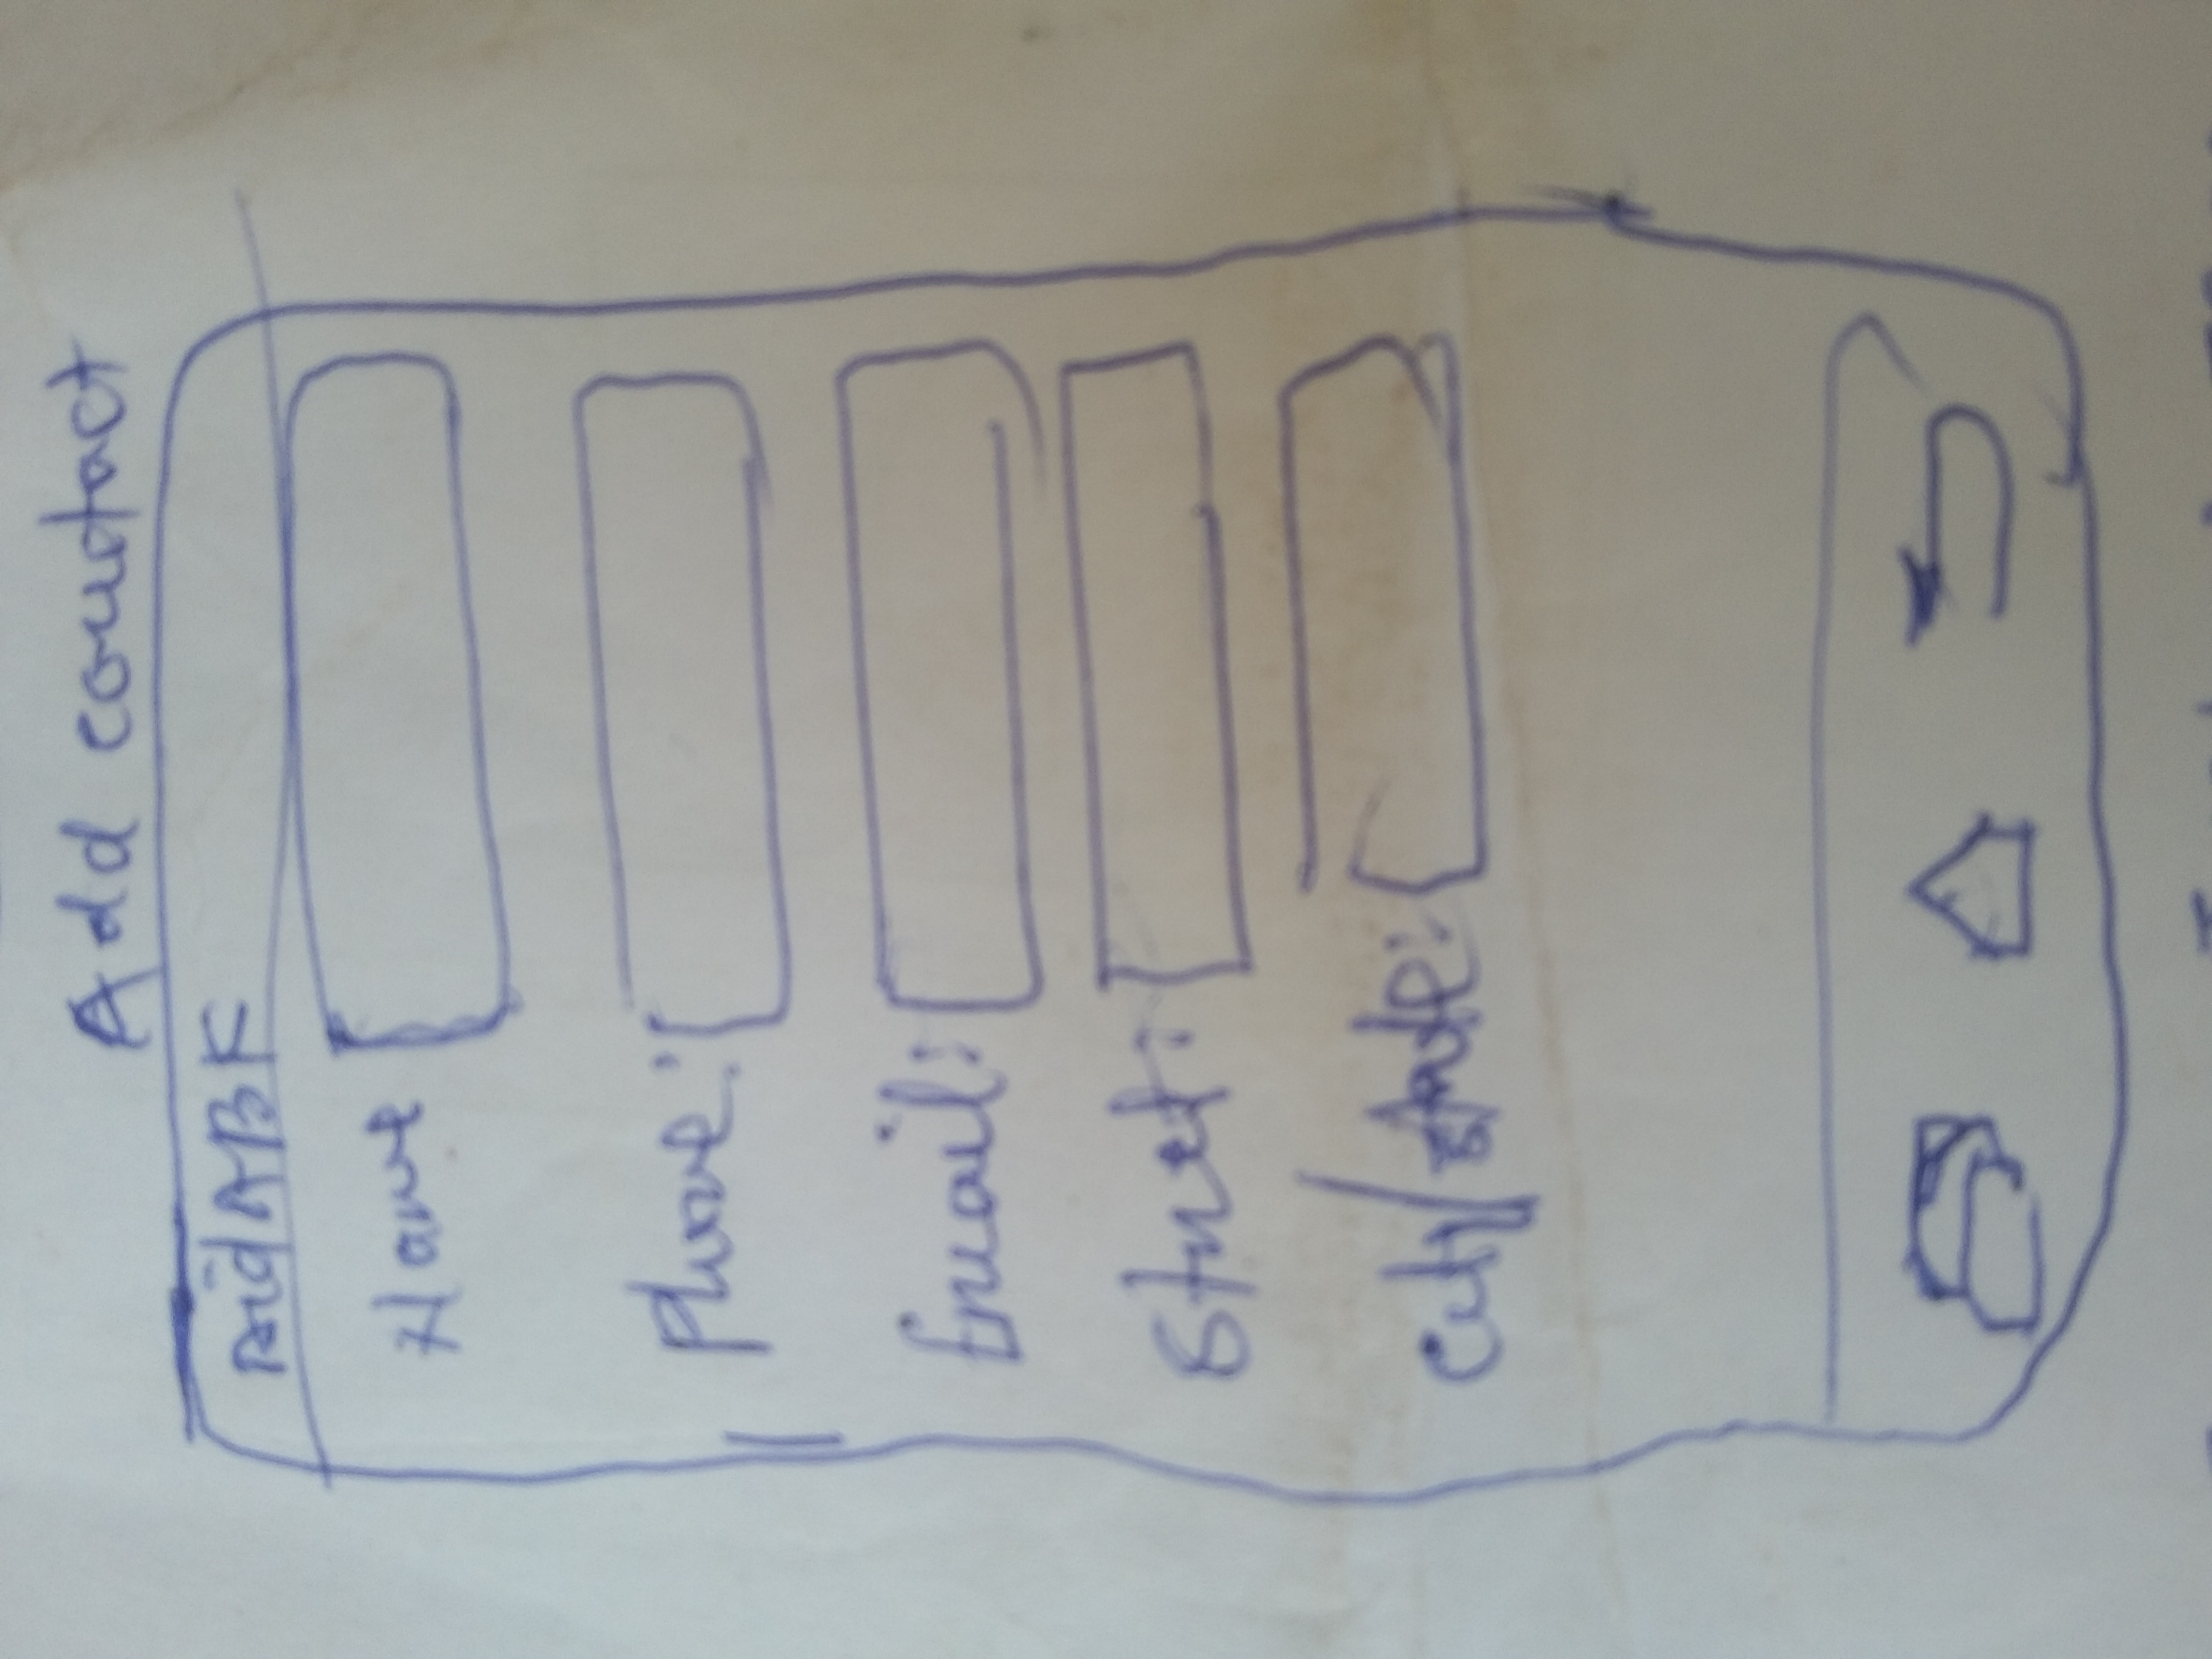 Add contact
AidABK
Name
Phone:
Email:
Street:
City/State: